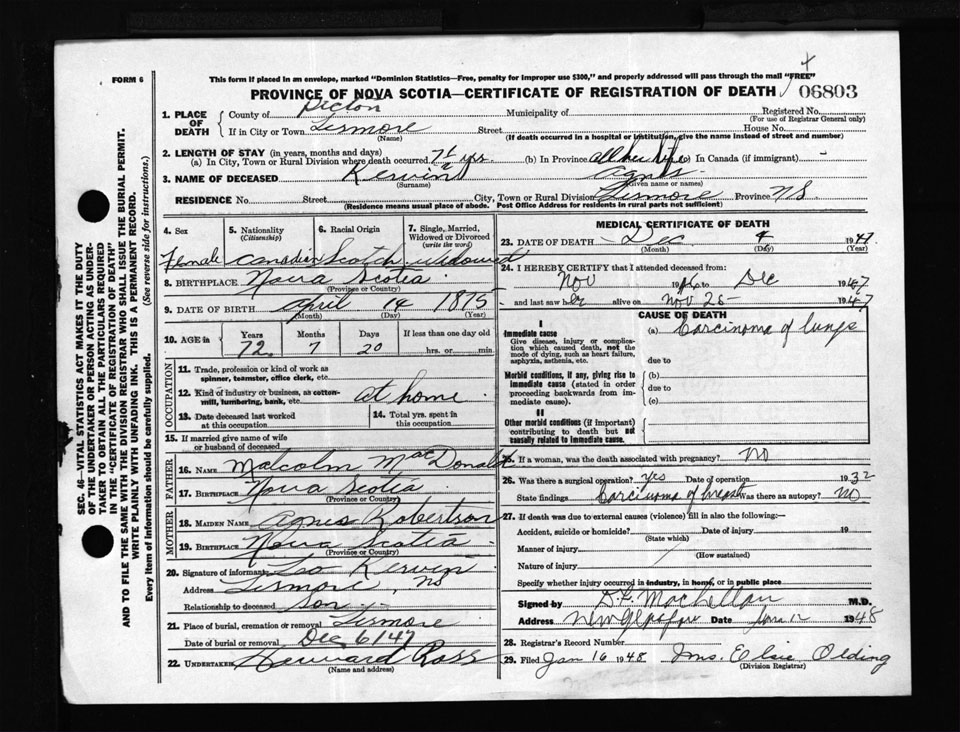 This form if placed in an envelope, marked "Dominion Statistics—Free, penalty for improper use $300," and properly addressed will pass through the mail "FREE"
FORM 6
PROVINCE OF NOVA SCOTIA—CERTIFICATE OF REGISTRATION OF DEATH 06803
SEC. 46—VITAL STATISTICS ACT MAKES IT THE DUTY
OF THE UNDERTAKER OR PERSON ACTING AS UNDER-
TAKER TO OBTAIN ALL THE PARTICULARS REQUIRED
IN THE "CERTIFICATE OF REGISTRATION OF DEATH"
AND TO FILE THE SAME WITH THE DIVISION REGISTRAR WHO SHALL ISSUE THE BURIAL PERMIT.
WRITE PLAINLY WITH UNFADING INK. THIS IS A PERMANENT RECORD.
Every item of information should be carefully supplied. (See reverse side for instructions.)
1. PLACE OF DEATH
County of Pictou Municipality of Registered No.
(For use of Registrar General only)
If in City or Town Lismore Street House No.
(Name) (If death occurred in a hospital or institution, give the name instead of street and number)
2. LENGTH OF STAY (in years, months and days)
(a) In City, Town or Rural Division where death occurred (b) In Province all her life (c) In Canada (if immigrant) -
3. NAME OF DECEASED Kervin Agnes
(Surname) (Given name or names)
RESIDENCE No. Street City, Town or Rural Division Lismore Province NS
(Residence means usual place of abode. Post Office Address for residents in rural parts not sufficient)
4. Sex
Female
5. Nationality
(Citizenship)
Canadian
6. Racial Origin
Scotch
7. Single, Married, Widowed or Divorced
(write the word)
Widowed
8. BIRTHPLACE Nova Scotia
(Province or Country)
9. DATE OF BIRTH April 14 1875
(Month) (Day) (Year)
10. AGE in Years Months Days If less than one day old
72 7 20 hrs. or min.
OCCUPATION
11. Trade, profession or kind of work as
spinner, teamster, office clerk, etc.
12. Kind of industry or business, as cotton-
mill, lumbering, bank, etc. at home
13. Date deceased last worked
at this occupation
14. Total yrs. spent in
this occupation
15. If married give name of wife
or husband of deceased
FATHER
16. NAME Malcolm MacDonald
17. BIRTHPLACE Nova Scotia
(Province or Country)
MOTHER
18. MAIDEN NAME Agnes Robertson
19. BIRTHPLACE Nova Scotia
(Province or Country)
20. Signature of informant Leo Kervin
Address Lismore, NS
Relationship to deceased Son
21. Place of burial, cremation or removal Lismore
Date of burial or removal Dec 6/47
22. UNDERTAKER Ross
(Name and address)
MEDICAL CERTIFICATE OF DEATH
23. DATE OF DEATH Dec 4 1947
(Month) (Day) (Year)
24. I HEREBY CERTIFY that I attended deceased from:
Nov to Dec 1947
and last saw her alive on Nov 25 1947
CAUSE OF DEATH
I
Immediate cause
Give disease, injury or complica-
tion which caused death, not the
mode of dying, such as heart failure,
asphyxia, asthenia, etc.
(a) Carcinoma of lungs
due to
Morbid conditions, if any, giving rise to
immediate cause (stated in order
proceeding backwards from im-
mediate cause).
(b)
due to
(c)
II
Other morbid conditions (if important)
contributing to death but not
causally related to immediate cause.
25. If a woman, was the death associated with pregnancy? No
26. Was there a surgical operation? yes Date of operation 1932
State findings Carcinoma of breast Was there an autopsy? No
27. If death was due to external causes (violence) fill in also the following:—
Accident, suicide or homicide? Date of injury 19
(State which)
Manner of injury
(How sustained)
Nature of injury
Specify whether injury occurred in industry, in home, or in public place
Signed by MacLellan M.D.
Address New Glasgow Date Jan 12 1948
28. Registrar's Record Number
29. Filed Jan 16 1948 Mrs. Elsie Olding
(Division Registrar)